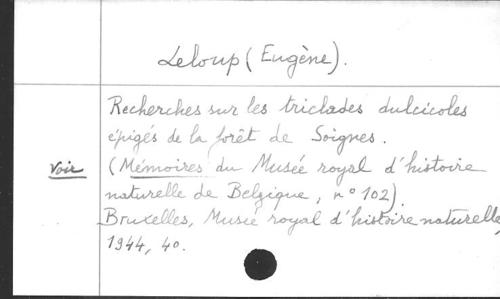 Leloup (Eugène).
Recherches sur les triclades dulcicoles
épigés de la forêt de Soignes.
Voir
(Mémoires du Musée royal d'histoire
naturelle de Belgique, n° 102).
Bruxelles, Musée royal d'histoire naturelle,
1944, 4o.